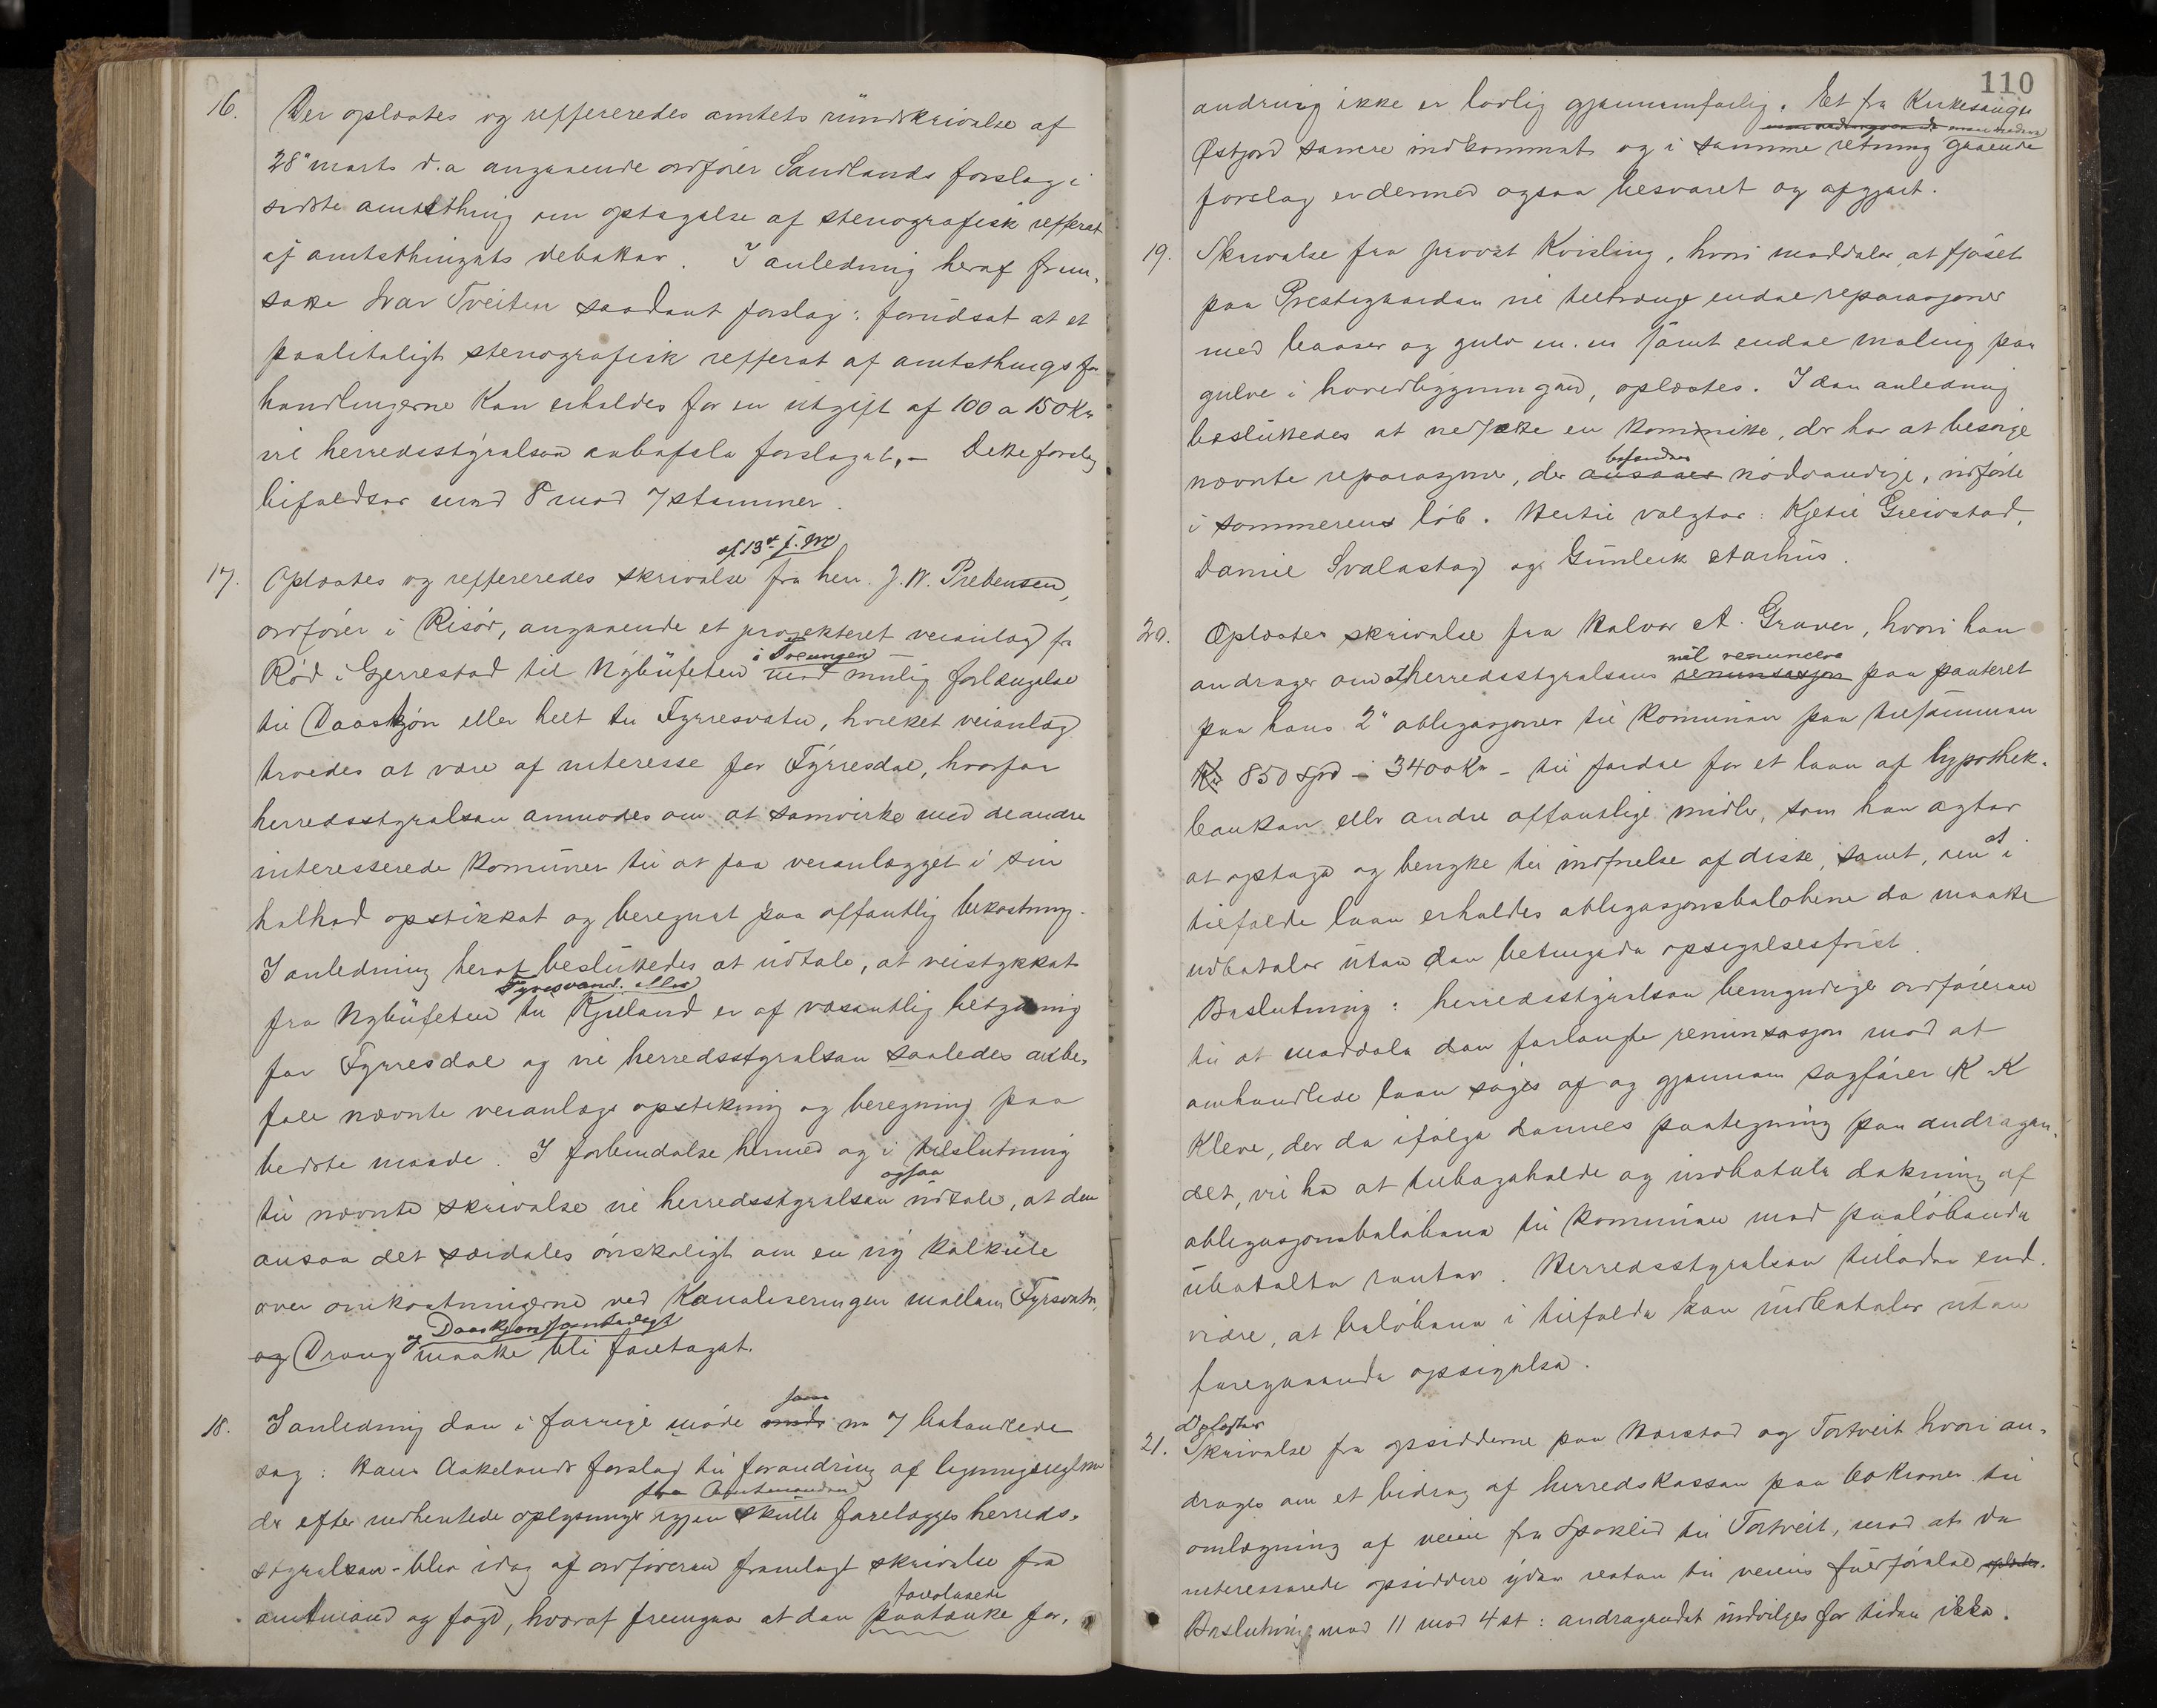 16. Der oplæstes og reffereredes amtets rundskrivelse af
28de marts d.a angaaende ordfører Sandlands forslag i
sidste amtsthing om optagelse af stenografisk refferat
af amtsthingets debatter. I anledning heraf frem-
satte Ivar Tveiten saadant forslag: forudsat at et
paalideligt stenografisk refferat af amtsthingsfor-
handlingerne kan erholdes for en utgift af 100 a 150 Kr
vil herredsstyrelsen anbefale forslaget. – Dette forslag
bifaldtes med 8 mod 7 stemmer.
af 13de f. M
17. Oplæstes og reffereredes skrivelse fra herr. J. W. Prebensen,
ordfører i Risør, angaaende et projekteret veianlæg fra
i Treungen
Rød i Gjerrestad til Nybufeten med mulig forlængelse
til Daaskjøn eller helt til Fyrresvatn, hvilket veianlæg
troedes at være af interesse for Fyrresdal, hvorfor
herredsstyrelsen anmodes om at samvirke med de andre
interesserede komuner til at faa veianlægget i sin
helhed opstikket og beregnet paa offentlig bekostning.
I anledning heraf besluttedes at udtale, at veistykket
Fyresvand eller
fra Nybufeten til Kjeland er af væsentlig betydning
for Fyrresdal og vil herredsstyrelsen saaledes anbe-
fale nævnte veianlægs opstikning og beregning paa
bedste maade. I forbindelse hermed og i tilslutning
ogsaa
til nævnte skrivelse vil herredsstyrelsen udtale, at den
ansaa det særdeles ønskeligt om en ny kalkule
over omkostningerne ved Kanaliseringen mellem Fyrsvatn,
og Daaskjøn samtidigt
og Drang maatte bli foretaget.
fore
18. I anledning den i forrige møde under no 7 behandlede
sag: Hans Aakelunds forslag til forandring af ligningsreglerne
fra Amtmanden
der efter indhentede oplysninger igjen skulle forelægges herreds-
styrelsen – blev idag af ordføreren fremlagt skrivelse fra
foreslaaede
amtmand og fogd, hvoraf fremgaar at den paatænkte for-
110
andring ikke er lovlig gjennemførlig. Et fra Kirkesanger
Østjord senere indkommet og i samme retning gaaende
forslag er dermed ogsaa besvaret og afgjort.
19. Skrivelse fra provst Kvisling, hvori meddeles at fjøset
paa Prestegaarden vil tiltrænge endel reparasjoner
med baaser og gulv m. m samt endel maling paa
gulve i hovedbygningen, oplæstes. I den anledning
besluttedes at nedsætte en komite, der har at besørge
befindes
nævnte reparasjoner, der ansaaes nødvendige, udførte
i sommerens løb. Hertil valgtes: Kjetil Greivstad,
Daniel Svalastog og Gunleik Aarhus.
20. Oplæstes skrivelse fra Halvor A. Graver, hvori han
vil renuncere
andrager om at herredsstyrelsens renunsasjon paa panteret
paa hans 2de obligasjoner til komunen paa tilsammen
Kr 850 Spd – 3400 Kr – til fordel for et laan af hypothek-
banken eller andre offentlige midler, som han agter
at optage og benytte til indfrielse af disse, samt, om at i
tilfælde laan erholdes obligasjonsbeløbene da maatte
udbetales uten den betingede opsigelsesfrist.
Beslutning: herredsstyrelsen bemyndiger ordføreren
til at meddele den forlangte renunsasjon mod at
omhandlede laan søges af og gjennem sagfører K K
Kleve, der da ifølge dennes paategning paa andragen-
det, vil ha at tilbageholde og indbetale dækning af
obligasjonsbeløbene til komunen med paaløbende
ubetalte renter. Herredsstyrelsen tillader end-
videre, at beløbene i tilfælde kan indbetales uten
foregaaende opsigelse.
Oplæstes
21. Skrivelse fra opsidderne paa Harstad og Tortveit hvori an-
drages om et bidrag af herredskassen paa 60 kroner til
omlægning af veien fra Spoklid til Tortveit, mod at de
interesserede opsiddere yder resten til veiens fuldførelse oplæstes.
Beslutning: med 11 mod 4 st: andragendet indvilges for tiden ikke.